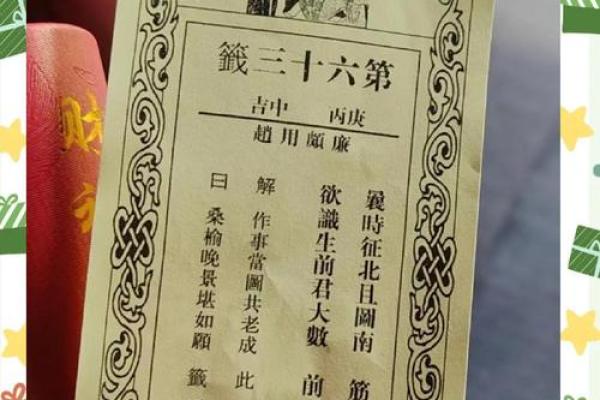 第六十三籤
庚丙 中吉
廉頗用趙
曩時征北且圖南 筋
欲識生前君大數 前
解 作事當圖共老成 此
曰 桑榆晚景堪如願 籤
財